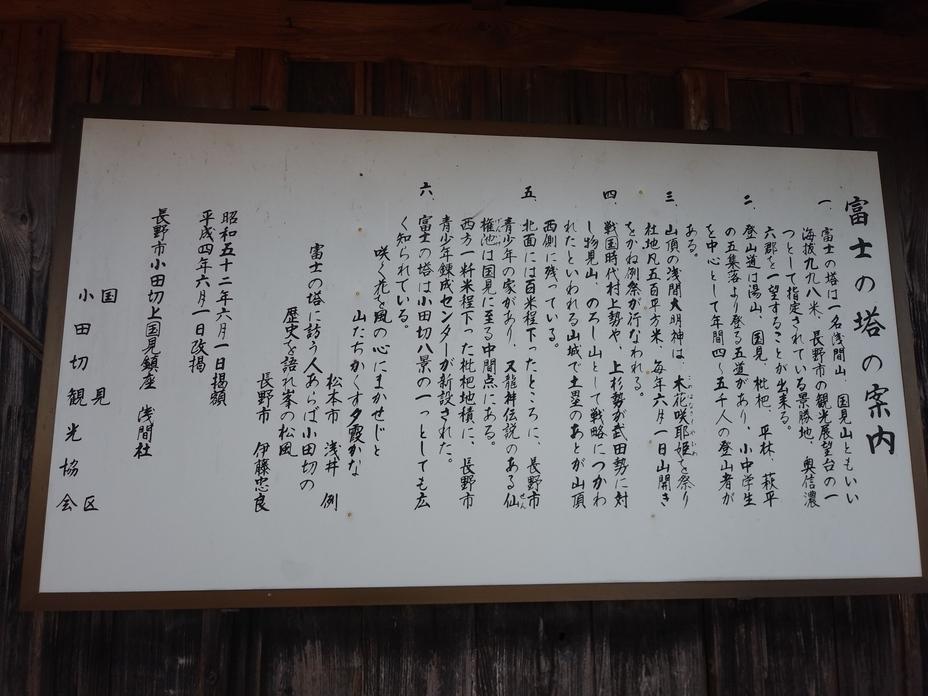 富士の塔の案内
一、富士の塔は一名浅間山、国見山ともいい
海抜九九八米、長野市の観光展望台の一
つとして指定されている景勝地、奥信濃
六郡を一望することが出来る。
二、登山道は湯山、国見、枇杷、平林、萩平
の五集落より登る五道があり、小中学生
を中心として年間四〜五千人の登山者が
ある。
三、山頂の浅間大明神は、木花咲耶姫を祭り
社地凡五百平方米、毎年六月一日山開き
をかね例祭が行なわれる。
四、戦国時代村上勢や、上杉勢が武田勢に対
し物見山、のろし山として戦略につかわ
れたといわれる山城で土塁のあとが山頂
西側に残っている。
五、北面には百米程下ったところに、長野市
青少年の家があり、又龍神伝説のある仙
権池は国見に至る中間点にある。
西方一粁米程下った枇杷地積に、長野市
青少年錬成センターが新設された。
六、富士の塔は小田切八景の一つとしても広
く知られている。
咲く花を風の心にまかせじと
山たちかくす夕霞かな
松本市 浅井 例
富士の塔に訪う人あらば小田切の
歴史を語れ峯の松風
長野市 伊藤忠良
昭和五十二年六月一日掲額
平成四年六月一日改掲
長野市小田切上国見鎮座 浅間社
国見区
小田切観光協会